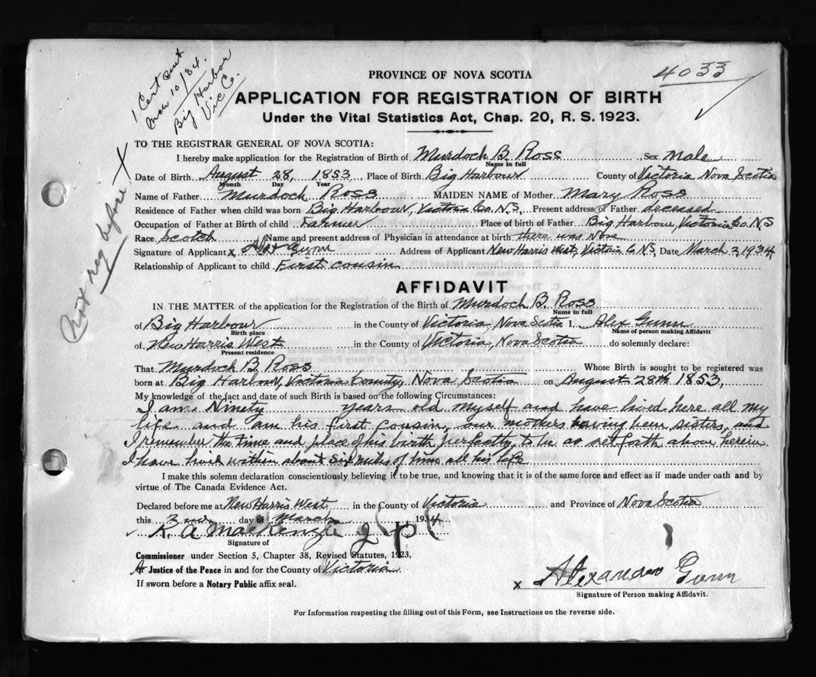 1 Cert sent
Mar 10/34.
Big Harbor
Vic C.
4033
PROVINCE OF NOVA SCOTIA
APPLICATION FOR REGISTRATION OF BIRTH
Under the Vital Statistics Act, Chap. 20, R. S. 1923.
Not reg before X
TO THE REGISTRAR GENERAL OF NOVA SCOTIA:
I hereby make application for the Registration of Birth of Murdoch B. Ross Sex Male
Name in full
Date of Birth August 28, 1853 Place of Birth Big Harbour County of Victoria Nova Scotia
Month Day Year
Name of Father Murdoch Ross MAIDEN NAME of Mother Mary Ross
Residence of Father when child was born Big Harbour, Victoria Co. N.S. Present address of Father deceased
Occupation of Father at Birth of child Farmer Place of birth of Father Big Harbour, Victoria Co N.S
Race Scotch Name and present address of Physician in attendance at birth there was None
Signature of Applicant x Alex Gunn Address of Applicant New Harris West, Victoria Co N.S, Date March 2, 1934
Relationship of Applicant to child First cousin
AFFIDAVIT
IN THE MATTER of the application for the Registration of the Birth of Murdoch B. Ross
Name in full
of Big Harbour in the County of Victoria, Nova Scotia I, Alex Gunn
Birth place Name of person making Affidavit
of New Harris West in the County of Victoria, Nova Scotia do solemnly declare:
Present residence
That Murdoch B. Ross Whose Birth is sought to be registered was
born at Big Harbour, Victoria County, Nova Scotia on August 28th 1853,
My knowledge of the fact and date of such Birth is based on the following Circumstances:
I am Ninety years old myself and have lived here all my
life and am his first cousin, our mothers having been sisters, and
I remember the time and place of his birth perfectly, to be as set forth above herein
I have lived within about six miles of him all his life
I make this solemn declaration conscientiously believing it to be true, and knowing that it is of the same force and effect as if made under oath and by
virtue of The Canada Evidence Act.
Declared before me at New Harris West in the County of Victoria and Province of Nova Scotia
this 2nd day of March 1934
K. A. MacKenzie J P
Signature of
Commissioner under Section 5, Chapter 38, Revised Statutes, 1923.
A Justice of the Peace in and for the County of Victoria
If sworn before a Notary Public affix seal.
x Alexander Gunn
Signature of Person making Affidavit.
For Information respecting the filling out of this Form, see Instructions on the reverse side.